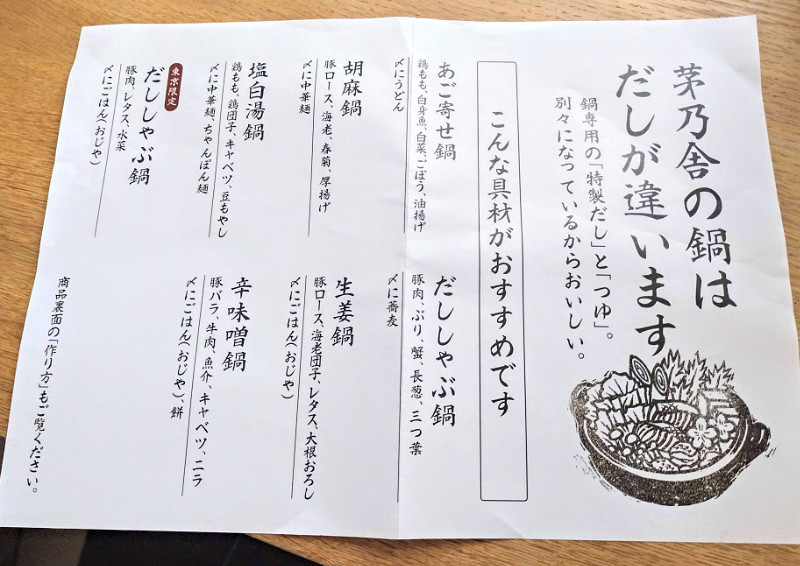 茅乃舎の鍋は
だしが違います
鍋専用の「特製だし」と「つゆ」。
別々になっているからおいしい。
こんな具材がおすすめです
あご寄せ鍋
鶏もも、白身魚、白菜、ごぼう、油揚げ
〆にうどん
胡麻鍋
豚ロース、海老、春菊、厚揚げ
〆に中華麺
塩白湯鍋
鶏もも、鶏団子、キャベツ、豆もやし
〆に中華麺、ちゃんぽん麺
東京限定
だししゃぶ鍋
豚肉、レタス、水菜
〆にごはん(おじや)
だししゃぶ鍋
豚肉、ぶり、蟹、長葱、三つ葉
〆に蕎麦
生姜鍋
豚ロース、海老団子、レタス、大根おろし
〆にごはん(おじや)
辛味噌鍋
豚バラ、牛肉、魚介、キャベツ、ニラ
〆にごはん(おじや)、餅
商品裏面の「作り方」もご覧ください。